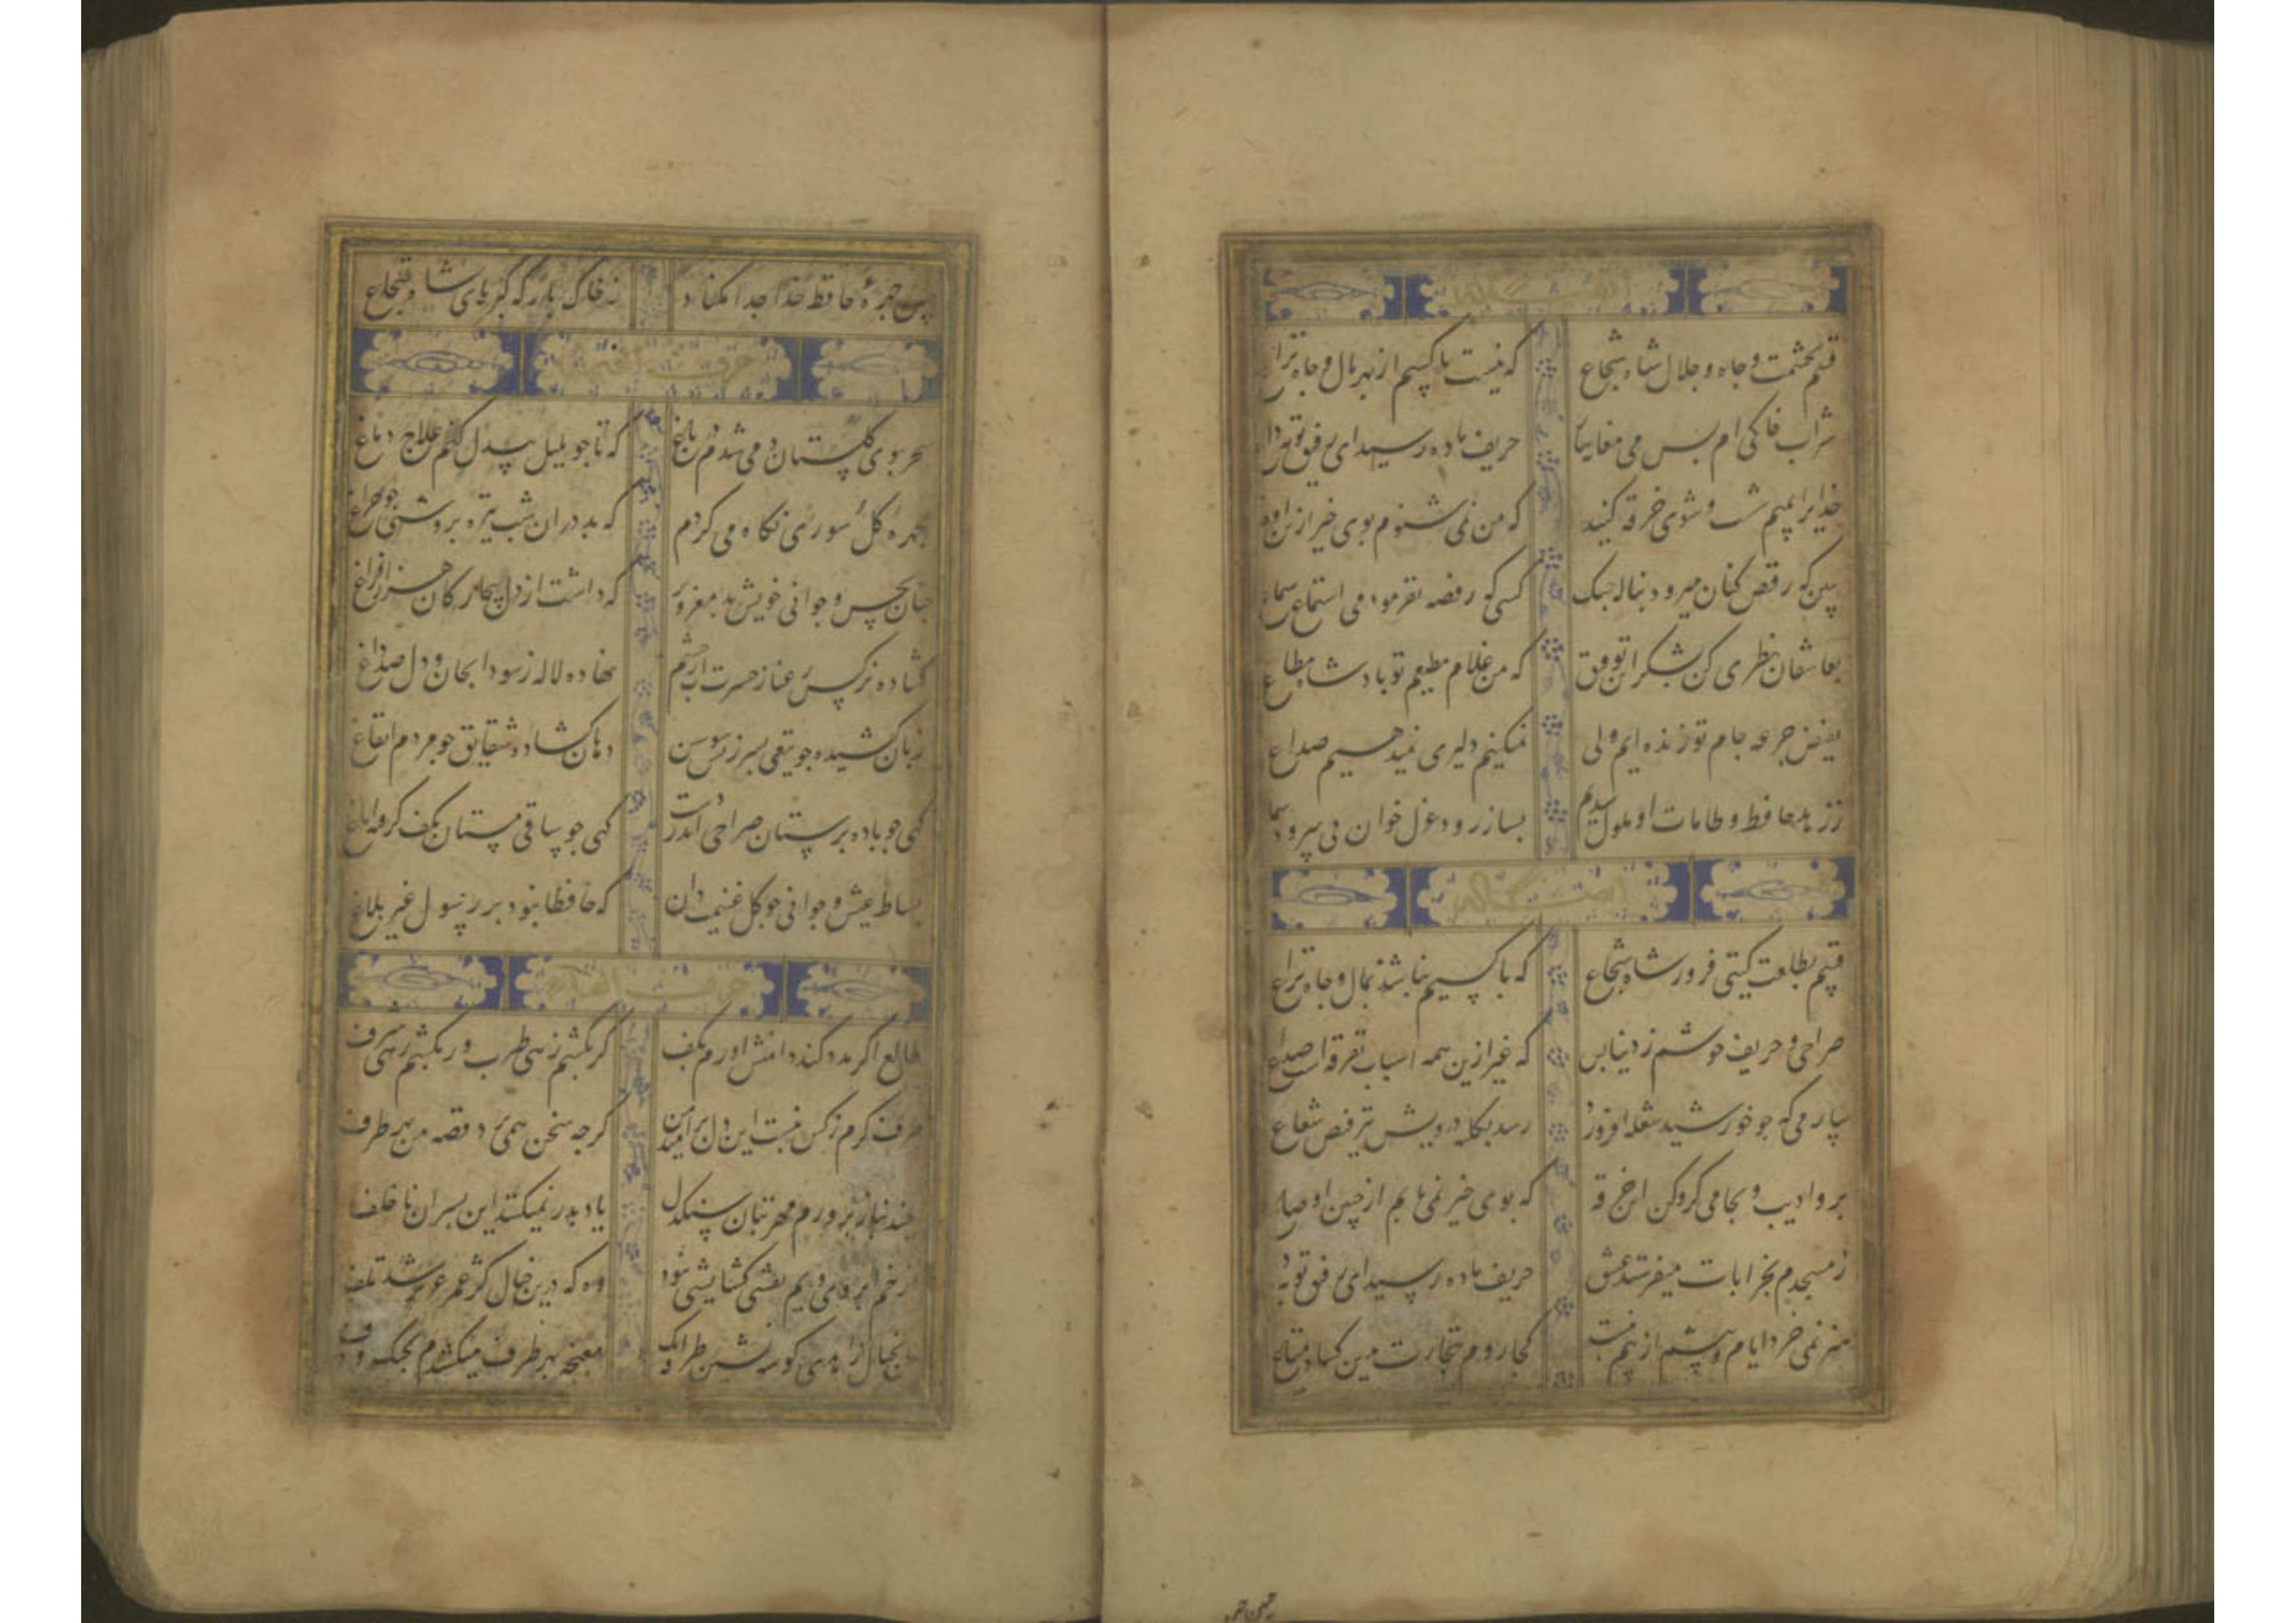 ایضاً له
قسم بحشمت و جاه و جلال شاه شجاع که نیست با کسم از بهر مال و جاه نزاع
شراب خانگی ام بس می مغانه بیار حریف باده رسید ای رفیق توبه وداع
خدایرا بمیم شست و شوی خرقه کنید که من نمی شنوم بوی خیر ازین اوضاع
ببین که رقص کنان میرود بناله چنک کسی که رخصه نفرمودمی استماع سماع
بعاشقان نظری کن بشکر این توفیق که من غلام مطیعم تو پادشاه مطاع
بفیض جرعه جام تو زنده ایم ولی نمیکنیم دلیری نمیدهیم صداع
ز زهد حافظ و طامات او ملول شدیم بساز رود و غزل خوان می سرود سماع
قسم بطلعت کیتی فروز شاه شجاع که با کسیم نباشد بمال و جاه نزاع
صراحی و حریف خوشم ز دنیا بس که غیر ازین همه اسباب تفرقه است صداع
بیار می که جو خورشید شعله افروزد رسد بکلبه درویش نیز فیض شعاع
برو ادیب و بجامی کرو کن این خرقه که بوی خیر نمی یابم از چنین اوضاع
ز مسجدم بخرابات میفرستد عشق حریف باده رسید ای رفیق توبه
هنر نمی خرد ایام و بیشم از ینم نیست کجا روم بتجارت بدین کساد متاع
حسن جو
جبین جهره حافظ خدا جدا مکناد ز خاک بارکه کبریای شاه شجاع
حرف الغین
سحر ببوی کلستان دمی شدم در باغ که تا جو بلبل بیدل کنم علاج دماغ
بجهره کل سوری نکاه می کردم که بد در ان شب تیره بروشنی جو جراغ
جنان بحسن و جوانی خویشتن مغرور که داشت از دل بیجارکان هزار فراغ
کشاده نرکس رعنا ز حسرت آب از جشم نهاده لاله ز سودا بجان و دل صد داغ
زبان کشیده جو تیغی بسرزنش سوسن دهان کشاده شقایق جو مردم ایغاغ
کهی جو باده برستان صراحی اندر دست کهی جو ساقی مستان بکف کرفته ایاغ
بساط عیش و جوانی جو کل غنیمت دان که حافظا نبود بر رسول غیر بلاغ
حرف الفاء
طالع اکر مدد کند دامنش اورم بکف کر بکشم زهی طرب ور بکشد زهی شرف
طرف کرم ز کس نبست این دل بر امید من کرجه سخن همی برد قصه من بهر طرف
جند بناز برورم مهر بتان سنکدل یاد بدر نمیکنند این بسران ناخلف
از خم ابروی ویم نقش کشایشی نشد وه که درین خیال کژ عمر عزیز شد تلف
من بخیال زاهدی کوشه نشین و طرفه انک مغبجه بهر طرف میکشدم بجنک و دف